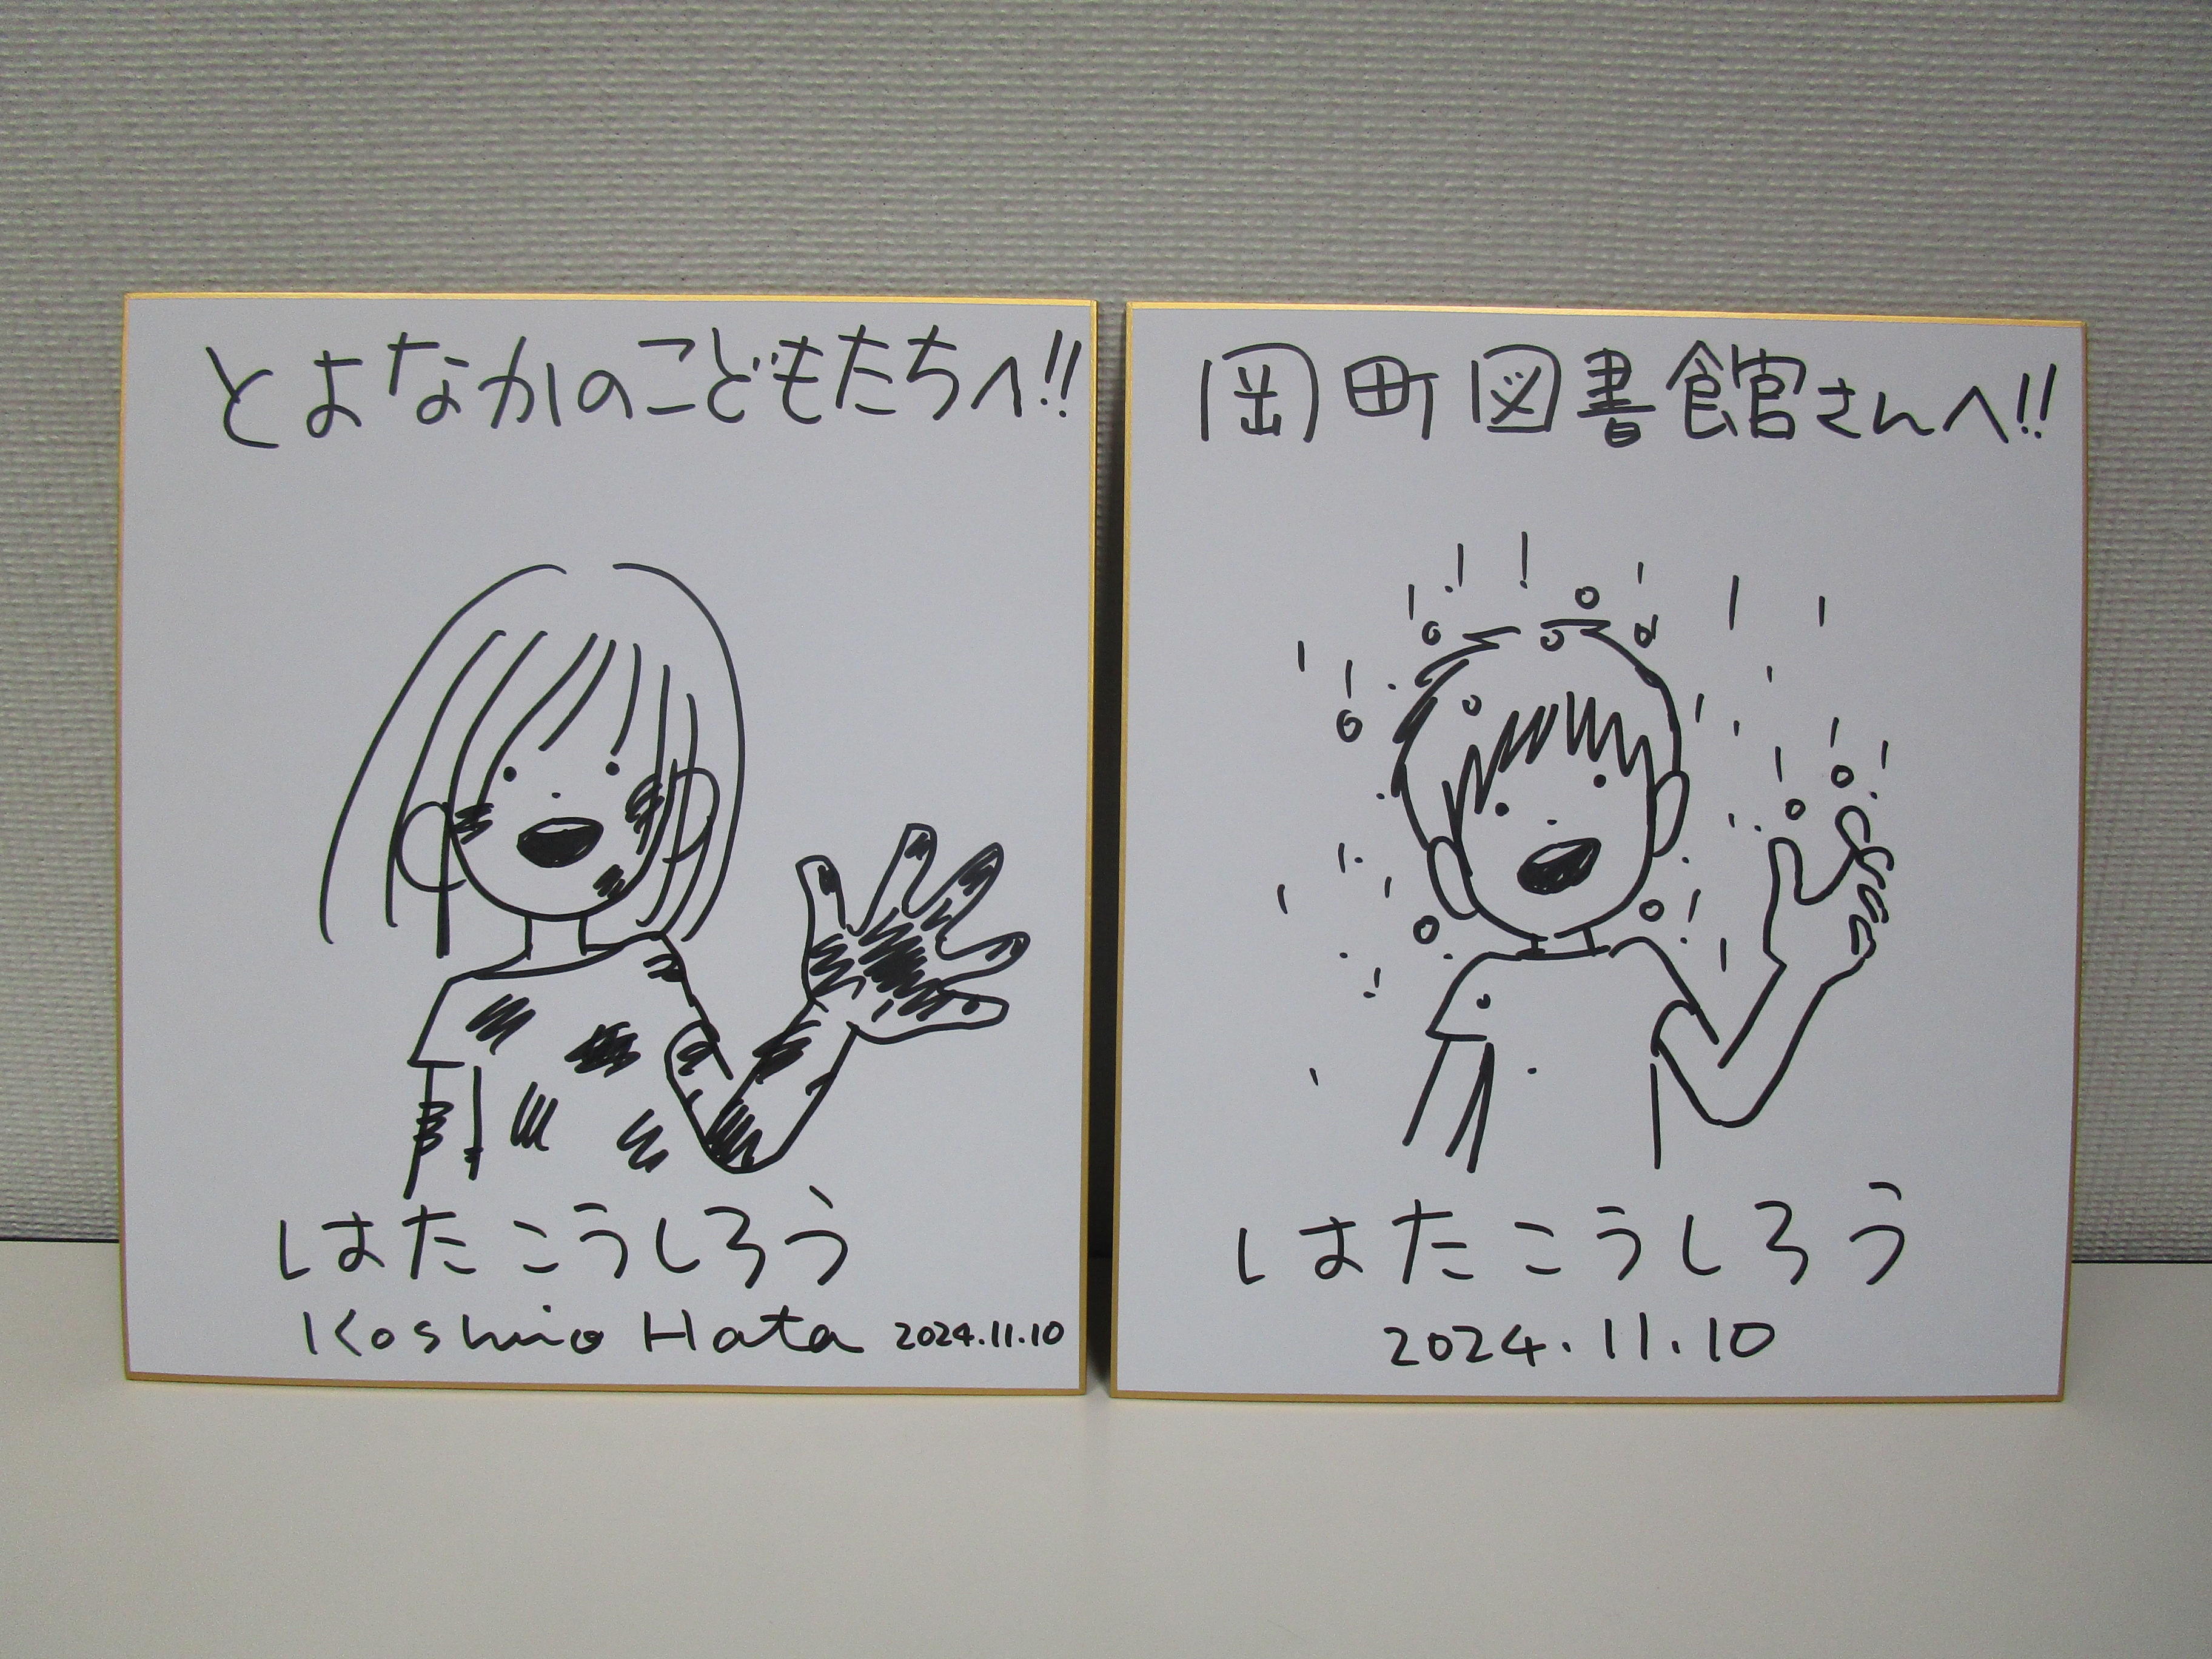 とよなかのこどもたちへ!!
はたこうしろう
Koshiro Hata 2024.11.10
岡町図書館さんへ!!
はたこうしろう
2024.11.10